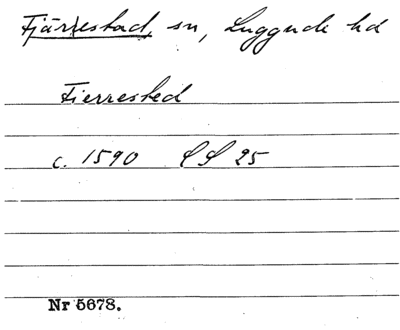 Fjärrestad, sn, Luggude hd
Fierrested
c. 1590 LL 25
Nr 5678.